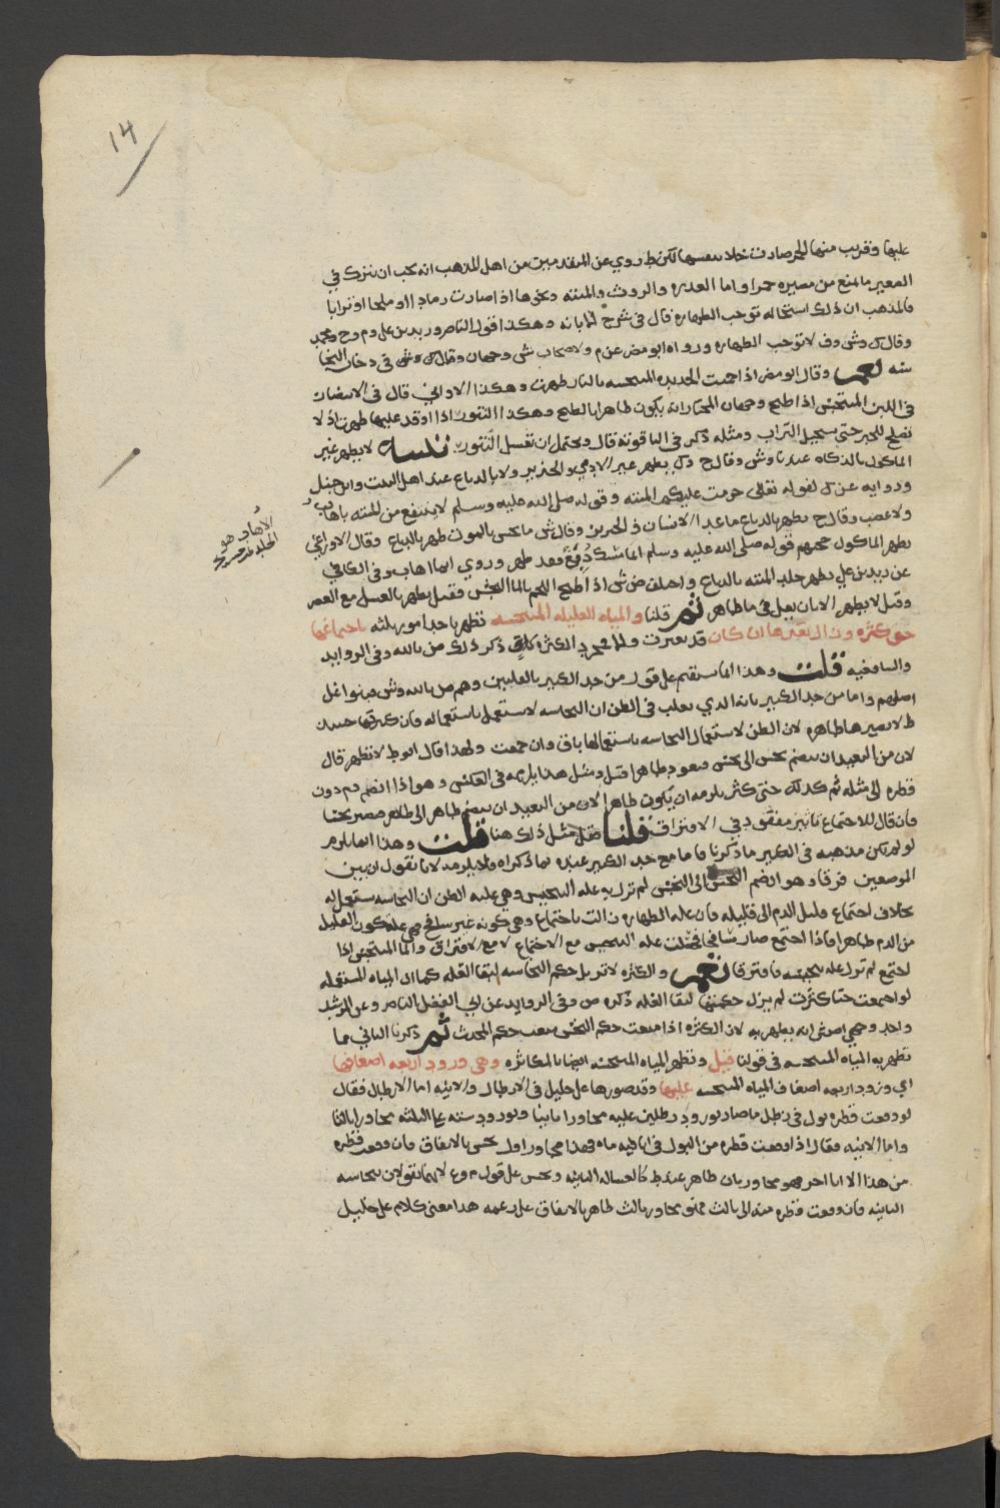 14
عليها وقريب منها الخمر صارت خلا بنفسها لكن ط روي عن المتقدمين من اهل المذهب انه يجب ان يترك في
العصير ما يمنع من مصيره خمرا واما العذره والروث والميته ونحوها اذا صارت رمادا او ملحا او ترابا
فالمذهب ان ذلك استحاله توجب الطهاره قال في شرح الابانه وهكذا قول الناصر وزيد بن علي وم وح ومحمد
وقال ك وش وف لا توجب الطهاره ورواه ابو مضر عن م ولاصحاب ش وجهان وقال ش في دخان النجا
سه نعم وقال ابو مضر اذا احميت الحديده المتنجسه بالنار طهرت وهكذا الاواني قال في الانتصار
في اللبن المتنجس اذا طبخ وجهان المختار انه يكون طاهرا بالطبخ وهكذا التنور اذا اوقد عليها طهرت اذ لا
تصلح للخبز حتى يستحيل التراب ومثله ذكر في الياقوته قال ويحتمل ان تغسل التنور تنبيه لا يطهر غير
الماكول بالذكاه عندنا وش وقال ح وك يطهر غير الادمي والخنزير ولا بالدباغ عند اهل البيت وابن حنبل
وروايه عن ك لقوله تعالى حرمت عليكم الميته وقوله صلى الله عليه وسلم لا ينتفع من الميته باهاب
ولا عصب وقال ح يطهر بالدباغ ما عدا الانسان والخنزير وقال ش ما نجس بالموت طهر بالدباغ وقال الاوزاعي
يطهر الماكول حجتهم قوله صلى الله عليه وسلم ايما مسك دُبِغَ فقد طهر وروي ايما اهاب وفي الكافي
عن زيد بن علي يطهر جلد الميته بالدباغ واختلف ش اذا طبخ اللحم بالما النجس فقيل يطهر بالغسل مع العصر
وقيل لا يطهر الا بان يغلى في ما طاهر ثم قلنا والمياه القليله المتنجسه تطهر باحد امور ثلثه باجتماعها
حتى كثره وزال تغيرها ان كان قد تغيرت والا فمجرد الكثره كاف ذكر ذلك ص بالله وفي الزوايد
والشافعيه قلت وهذا انما يستقيم على قول من حد الكثير بالقلتين وهم ص بالله وش فبنوا على
اصلهم واما من حد الكثير بانه الذي يغلب في الظن ان النجاسه لا تستعمل باستعماله فان كثرتها حينئذ
ط لا تصيرها طاهره لان الظن لاستعمال النجاسه باستعمالها باق وان جمعت ولهذا قال ابو ط لا تطهر قال
لان من البعيد ان ينضم نجس الى نجس فيعود طاهرا قيل ومثل هذا يلزمه في العكس وهو اذا انضم دم دون
قطره الى مثله ثم كذلك حتى كثر يلزمه ان يكون طاهرا لان من البعيد ان ينضم طاهر الى طاهر فيصير نجسا
فان قال للاجتماع تاثير مفقود في الافتراق قلنا فقل مثل ذلك هنا قلت وهذا انما يلزم
لو لم يكن مذهبه في الكثير ما ذكرنا فاما مع حد الكثير عنده بما ذكرناه فلا يلزمه لانا نقول ان بين
الموضعين فرقا وهو ان ضم النجس الى النجس لم تزل به عله التنجيس وهي غلبه الظن ان النجاسه مستعمله
بخلاف اجتماع قليل الدم الى قليله فان عله الطهاره زالت باجتماع وهي كونه غير سافح وهي عله كون القليل
من الدم طاهرا فاذا اجتمع صار سافحا فحصلت عله التنجيس مع الاجتماع لا مع الافتراق والما المتنجس اذا
اجتمع لم تزل عله تنجيسه فافترقا نعم والكثره لا تزيل حكم النجاسه لبقا القله كما ان المياه المستعمله
لو اجتمعت حتى كثرت لم يزل حكمها لبقا القله ذكره ص وفي الزوايد عن ابي الفضل الناصر وعن المرشد
واحد وجهي اصش انه يطهر به لان الكثره اذا منعت حكم النجس منعت حكم المحدث ثم ذكرنا الثاني مما
تطهر به المياه المتنجسه في قولنا قيل وتطهر المياه المتنجسه ايضا بالمكاثره وهي ورود اربعه اضعافها
اي ورود اربعه اضعاف المياه المتنجسه عليها وقد صورها علي خليل في الارطال والانيه اما الارطال فقال
لو وقعت قطره بول في رطل ما صار بورود رطلين عليه مجاورا ثانيا وبورود سته على الثلثه مجاورا ثالثا
واما الانيه فقال اذا وقعت قطره من البول في انا فيه ماء فهذا مجاور اول نجس بالاتفاق فان وقعت قطره
من هذا الانا اخر فهو مجاور ثان طاهر عند ط كالغساله الثانيه ونجس على قول م وع لانهما يقولان بنجاسه
الثانيه فان وقعت قطره منه الى ثالث فهو مجاور ثالث طاهر بالاتفاق على زعمه هذا معنى كلام علي خليل
الاهاب هو
الجلد